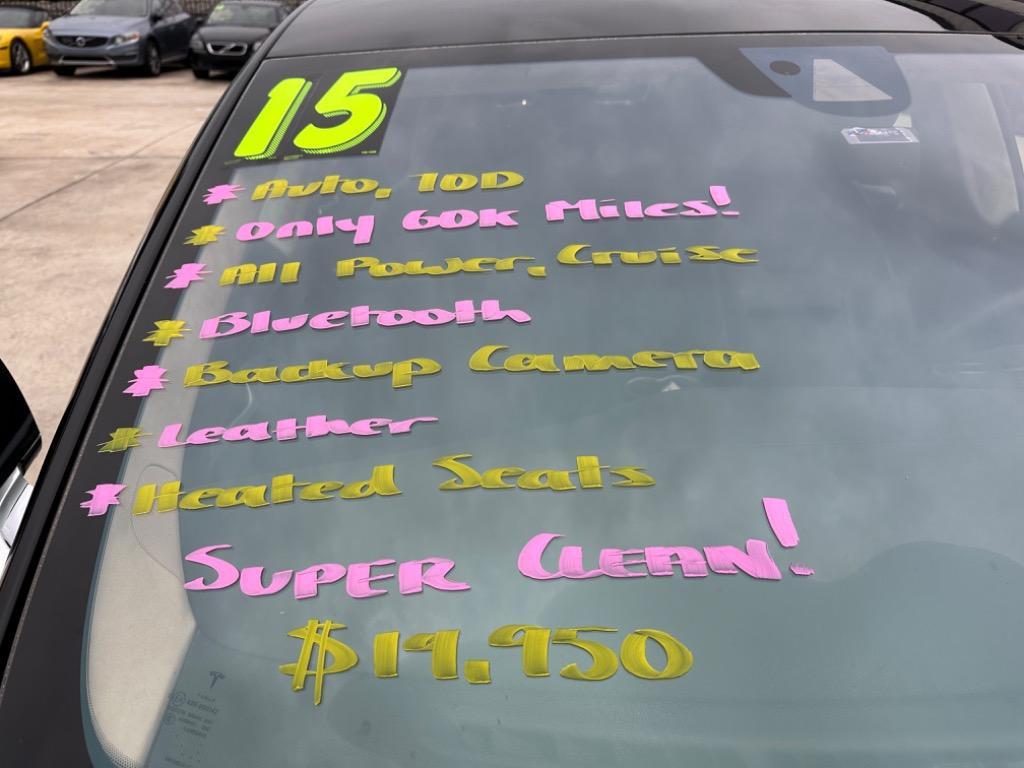 15
* Auto, 70D
* Only 60k Miles!
* All Power, Cruise
* Bluetooth
* Backup Camera
* Leather
* Heated Seats
Super Clean!
$19,950